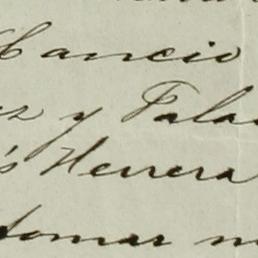 Cancio
ez y Pala
s Herrera
tomar m